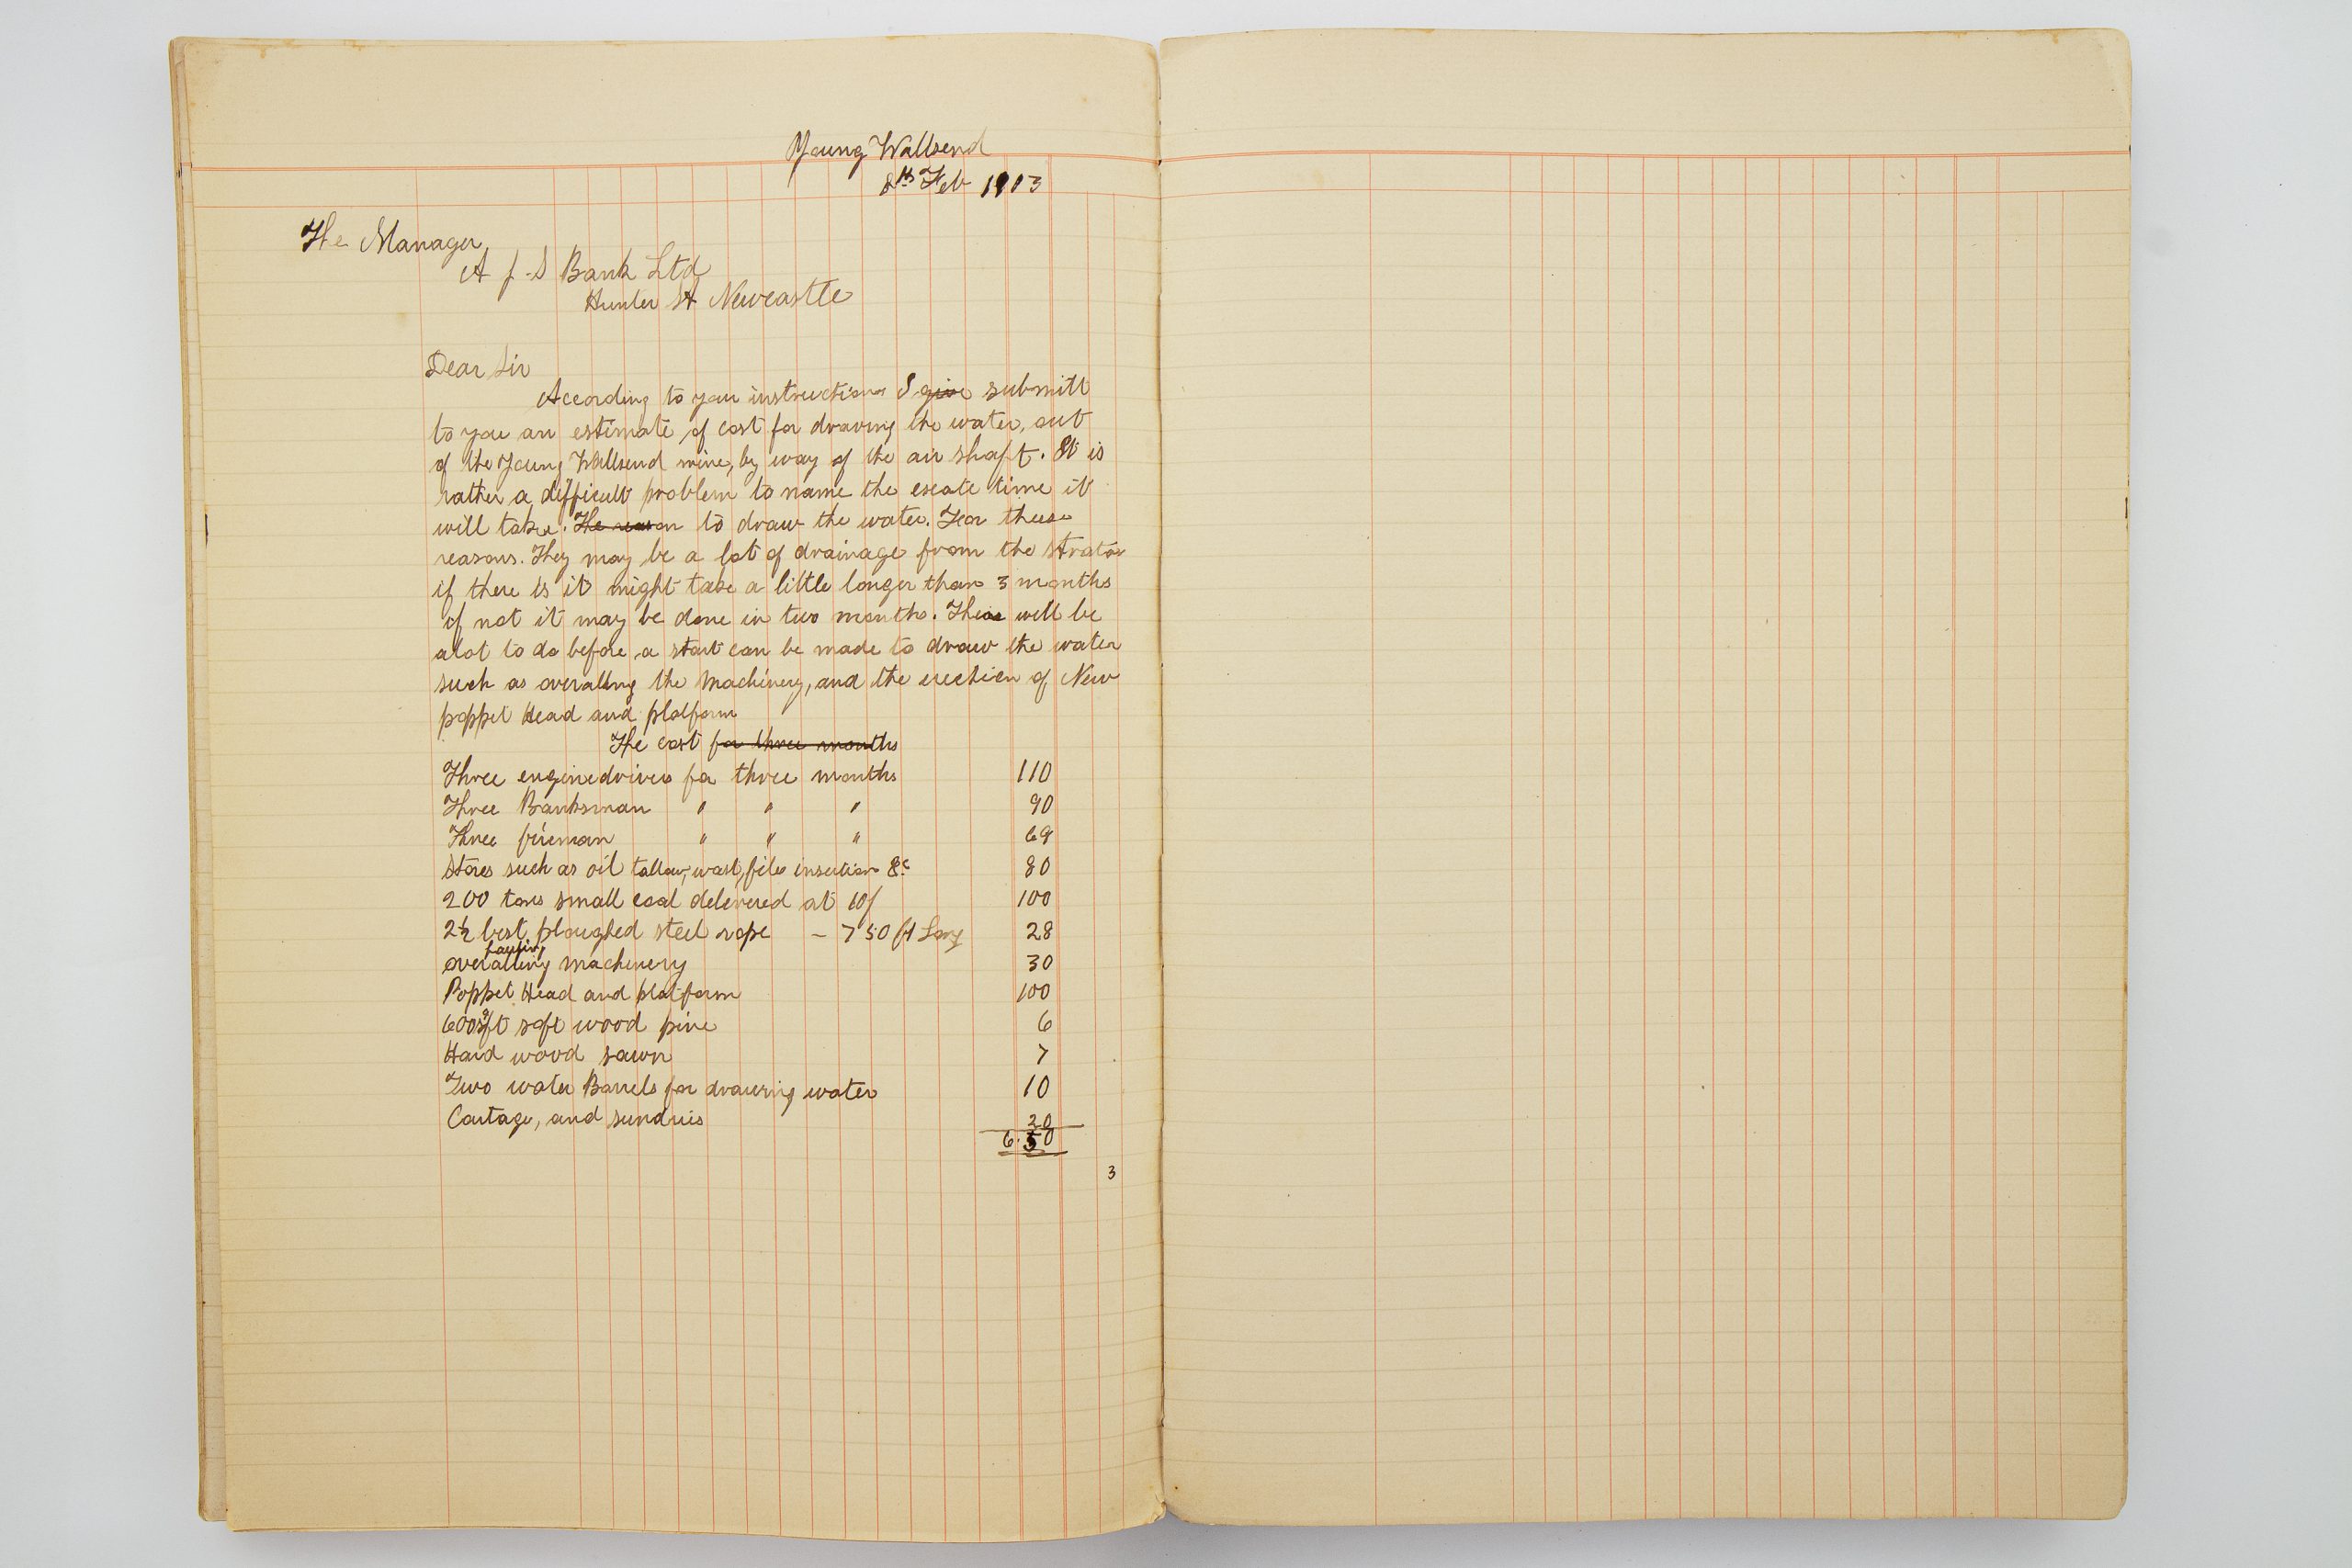 Young Wallsend
8th Feb 1903
The Manager
A J S Bank Ltd
Hunter St Newcastle
Dear Sir
According to you instructions I give submitt
to you an estimate of cost for drawing the water, out
of the Young Wallsend mine, by way of the air shaft. It is
rather a difficult problem to name the excate time it
will take. The reason to draw the water. For these
reasons. They may be a lot of drainage from the strata
if there is it might take a little longer than 3 months
if not it may be done in two months. There will be
alot to do before a start can be made to draw the water
such as overalling the Machinery, and the erection of New
poppet Head and platform
The cost for three months
Three enginedrivers for three months 110
Three Banksman " " " 90
Three fireman " " " 69
Stores such as oil tallow, wast, files insertion &c 80
200 tons small coal delivered at 10/ 100
2½ best ploughed steel rope - 750 ft Long 28
hauling
overalling machinery 30
Poppet Head and platform 100
600 sq ft soft wood pine 6
Hard wood sawn 7
Two water Barrels for drawring water 10
Cartage, and sundries 20
6.50
3